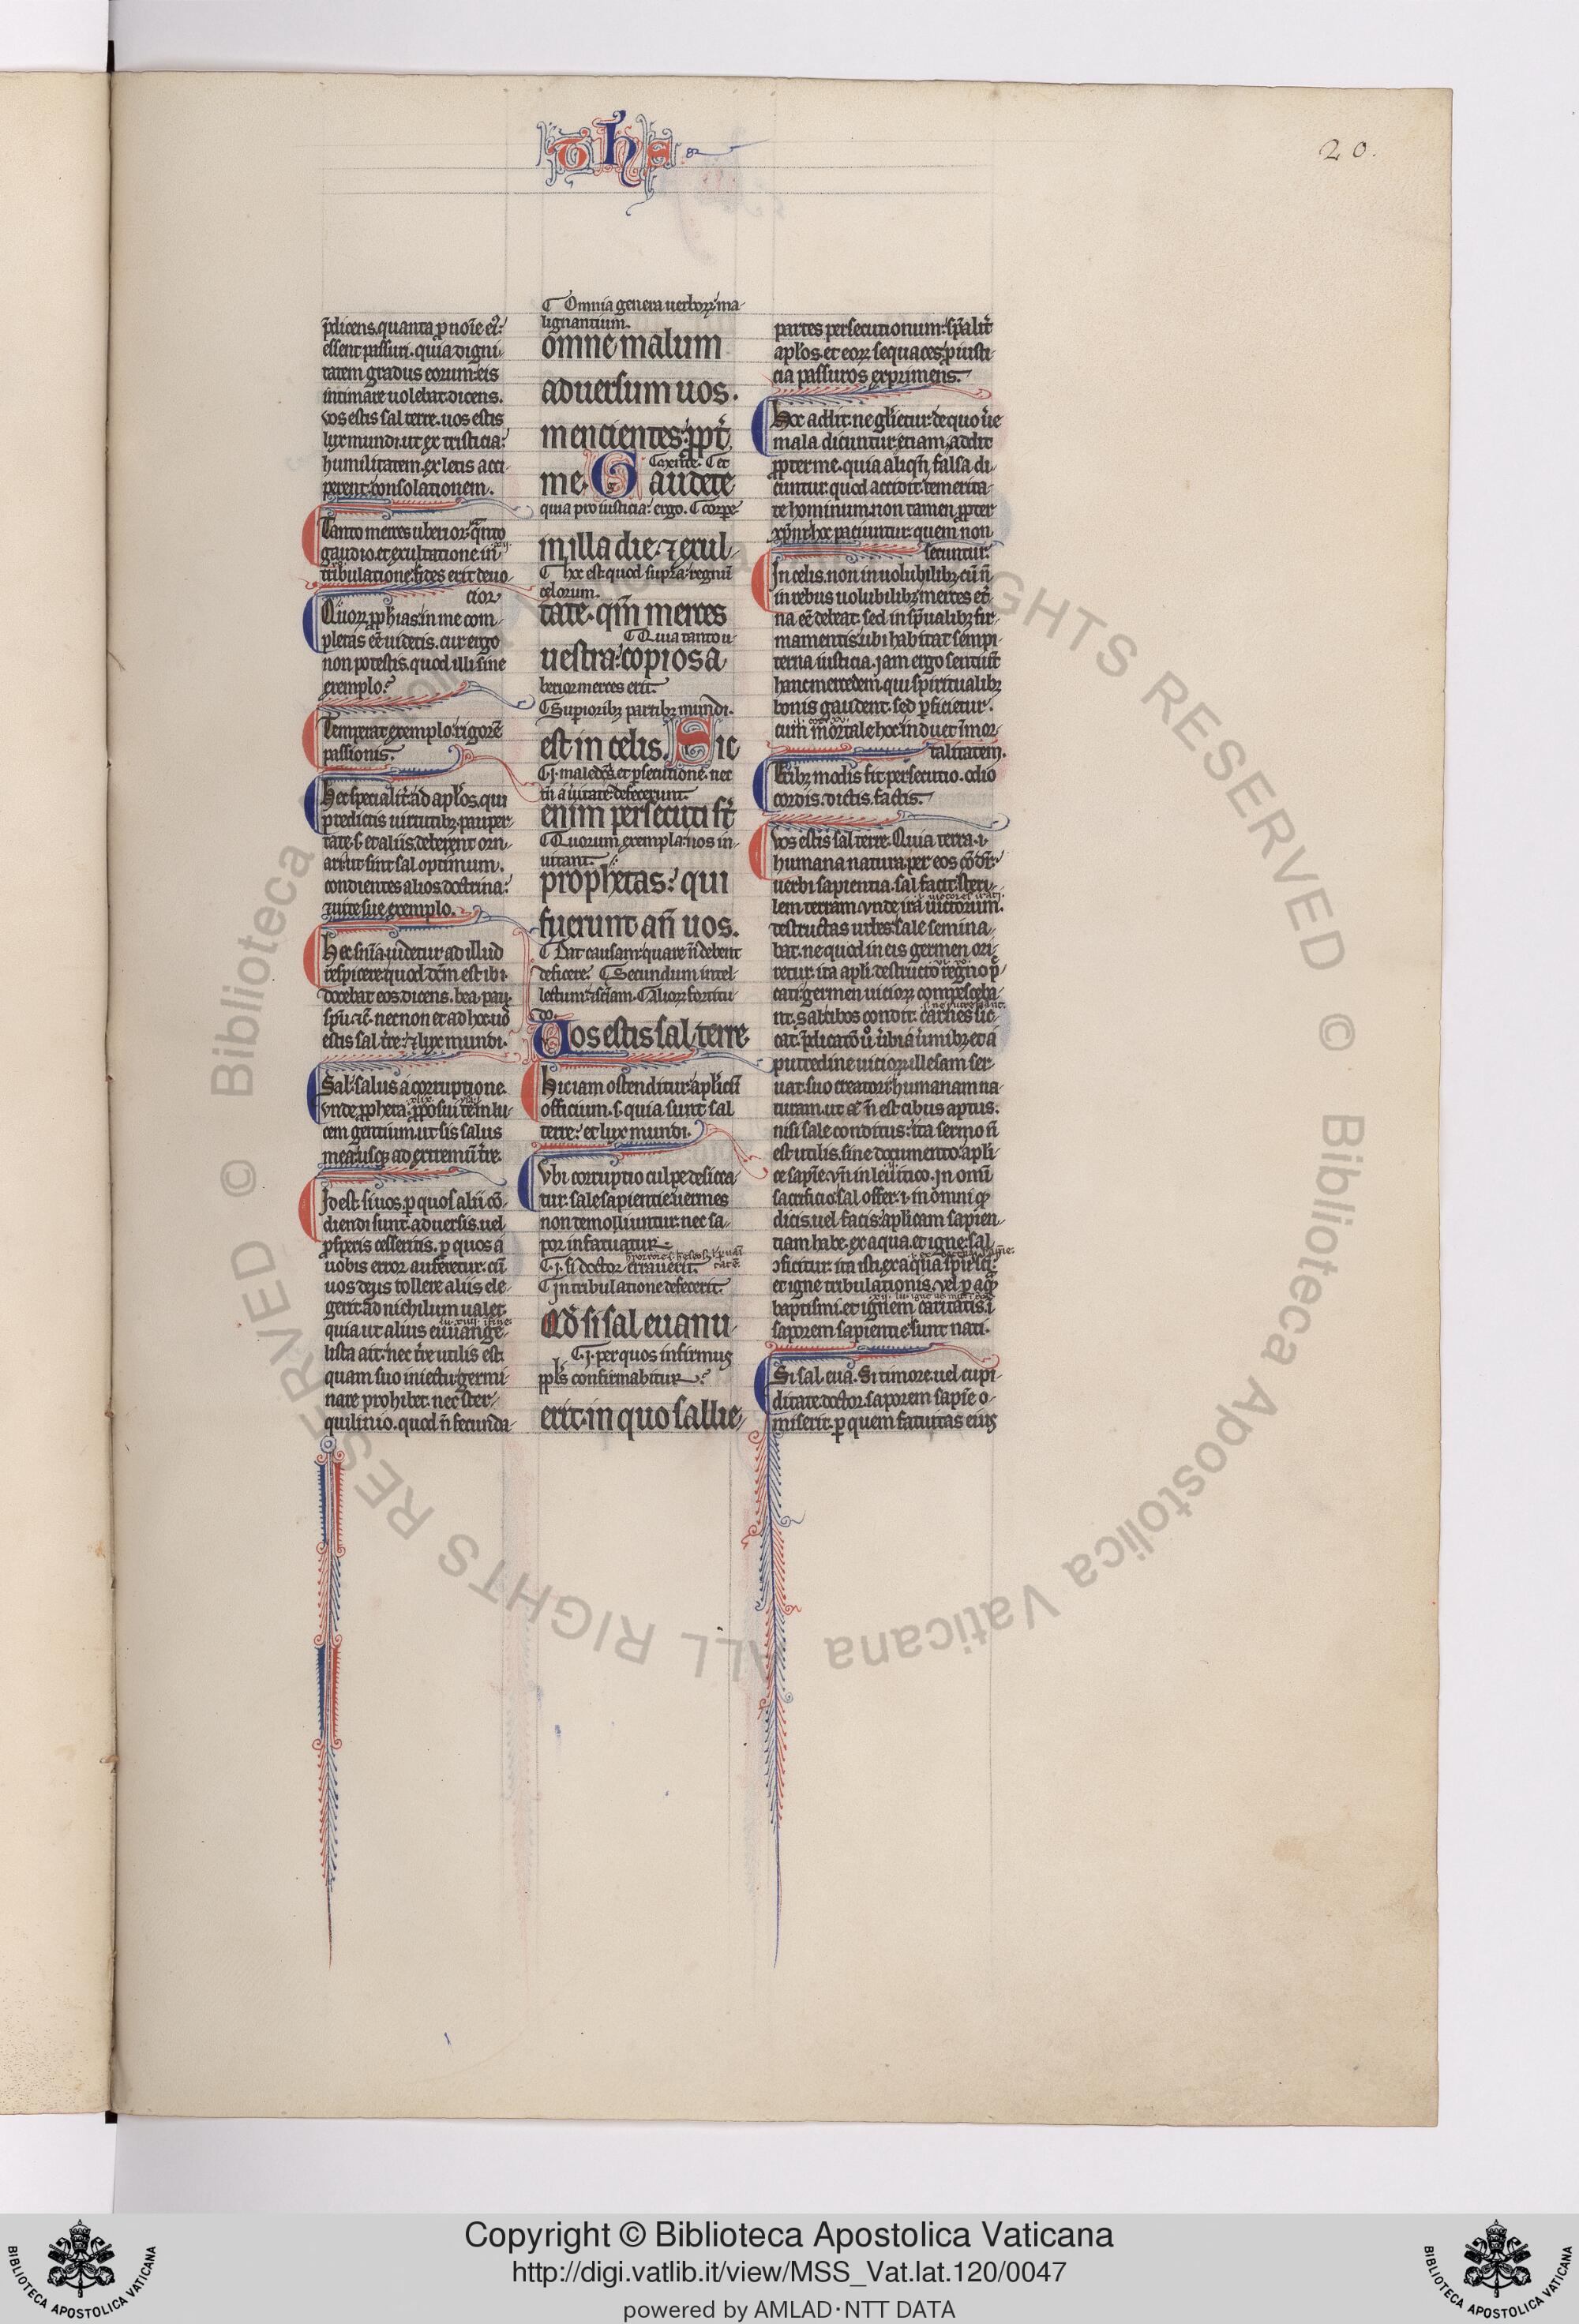 T h E
20.
p̄dicens. quanta ꝑ noīe eiꝰ:
essent passuri. quia digni-
tatem gradus eorum eis
intimare uolebat. dicens.
vos estis sal terre. uos estis
lux mundi. ut ex tristicia:
humilitatem. ex letis acci-
perent consolationem.
Tanto merces uberior: q̄nto
gaudio. et exultatione in
tribulatione: fides erit deuo-
cior.
Quorꝝ ꝓphias. in me com-
pletas eē uidetis. cur ergo
non potestis. quod illi sine
exemplo?
Temperat exemplo: rigorē
passionis.
Hec specialit̄ ad apl̄os. qui
predictis uirtutibꝫ. pauper-
tate. s. et aliis. debent orn-
ari: ut sint sal optimum.
condientes alios. doctrina:
⁊ uite sue exemplo.
Hec sn̄ia. uidetur ad illud
respicere: quod dc̄m est ibi.
docebat eos. dicens. bea. pau.
spū. ⁊c̄. nec non et ad hoc. uō
estis sal t̄re: ⁊ lux mundi.
Sal: salus a corruptione.
vnde ꝓpheta. ꝓposui te in lu-
cem gentium. ut sis salus
mea: usqꝫ ad extremū t̄re.
Id est. si uos. ꝑ quos alii cō-
diendi sunt. aduersis. uel
ꝓsperis cesseritis. ꝑ quos a
uobis error auferetur. cū
uos deus tollere aliis ele-
gerit: ad nichilum ualet.
quia ut alius euuange-
lista ait. nec t̄re utilis est.
quam suo iniectu: germi-
nare prohibet. nec ster-
quilinio. quod n̄ fecunda-
Omnia genera uerborꝝ ma-
lignantium.
omne malum
aduersum uos.
mencientes: ꝓpt̄
me. Gaudete
quia pro iusticia: ergo. Corpe
in illa die: ⁊ exul-
hoc est quod supra: regnū
celorum.
tate. qm̄ merces
Quia tanto u-
uestra: copiosa
berior merces erit.
Supioribꝫ partibꝫ mundi.
est in celis. Sic
.i. maledc̄s. et ꝑsecutione. nec
tn̄ a uītate defecerunt.
enim persecuti st̄
Quorum exempla: uos in-
uitant.
prophetas: qui
fuerunt an̄ uos.
Dat causam: quare n̄ debent
deficere. Secundum intel-
lectum: ⁊ sc̄iam. Aliorꝝ fortitu-
do.
Uos estis sal terre
Hic iam ostenditur: apl̄icū
officium. s. quia sunt sal
terre: et lux mundi.
Vbi corruptio culpe desicca-
tur: sale sapientie: uermes
non demolliuntur. nec sa-
por infatuatur.
.i. si doctor errauerit.
In tribulatione defecerit.
Qd̄ si sal euanu-
.i. per quos infirmus
ppl̄s confirmabitur?
erit: in quo sallie-
partes persecutionum: sp̄alit̄
apl̄os. et eorꝝ sequaces: ꝓ iusti-
cia passuros exprimens.
Hoc addit: ne gl̄ietur: de quo ūe
mala dicuntur, etiam addit
ꝓpter me. quia aliqn̄ falsa di-
cuntur. quod accidit: temerita-
te hominum. non tamen ꝓpter
xp̄m: hoc paciuntur: quem non
secuntur.
In celis. non in uolubilibꝫ: cū n̄
in rebus uolubilibꝫ merces et̄-
na eē debeat. sed in sp̄ualibꝫ fir-
mamentis: ubi habitat sempi-
terna iusticia. Jam ergo sentiūt
hanc mercedem. qui spiritualibꝫ
bonis gaudent. sed ꝑficietur.
cum mortale hoc: induet īmor-
talitatem.
Tribꝫ modis fit persecutio. odio
cordis. dictis. factis.
Vos estis sal terre. Quia terra. i.
humana natura. per eos cōdīt̄:
uerbi sapientia. sal facit steri-
lem terram. vnde ira uictorum:
destructas urbes: sale semina-
bat. ne quod in eis germen ori-
retur. ita apl̄i destructo regno p̄-
cati: germen uiciorꝝ compesceba-
nt. Sal cibos condit: carnes sic-
cat. p̄dicatō u̾o ūbi a ūmibꝫ. et a
putredine uiciorꝝ illesam ser-
uat. suo creatori humanam na-
turam. ut ā̄ n̄ est cibus aptus.
nisi sale conditus: ita sermo n̄
est utilis. sine documento: apl̄i-
ce sapīe. vn̄ in leuitico. In om̄i
sacrificio: sal offer. i. in omni qꝫ
dicis. uel facis: aplicam sapien-
tiam habe. ex aqua. et igne: sal
ꝯficitur. ita isti. ex aqua sp̄ict̄:
et igne tribulationis. vel ꝑ aquā
baptismi. et ignem caritatis. i
saporem sapientie sunt nati.
Si sal. euā. Si timore. uel cupi-
ditate: doctor. saporem sapīe o-
miserit. ꝑ quem fatuitas eius
Copyright © Biblioteca Apostolica Vaticana
http://digi.vatlib.it/view/MSS_Vat.lat.120/0047
powered by AMLAD·NTT DATA
BIBLIOTECA APOSTOLICA VATICANA
BIBLIOTECA APOSTOLICA VATICANA
© Biblioteca Apostolica Vaticana ALL RIGHTS RESERVED © Biblioteca Apostolica Vaticana ALL RIGHTS RESERVED